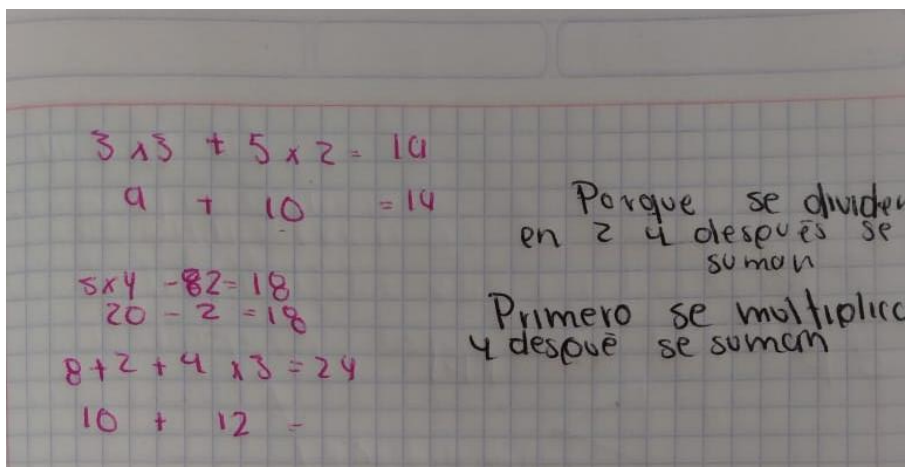 3 x 3 + 5 x 2 = 19
9 + 10 = 19
5x4 - 2 = 18
20 - 2 = 18
8 + 2 + 4 x 3 = 24
10 + 12 =
Porque se dividen
en 2 y después se
suman
Primero se multiplica
y despué se suman